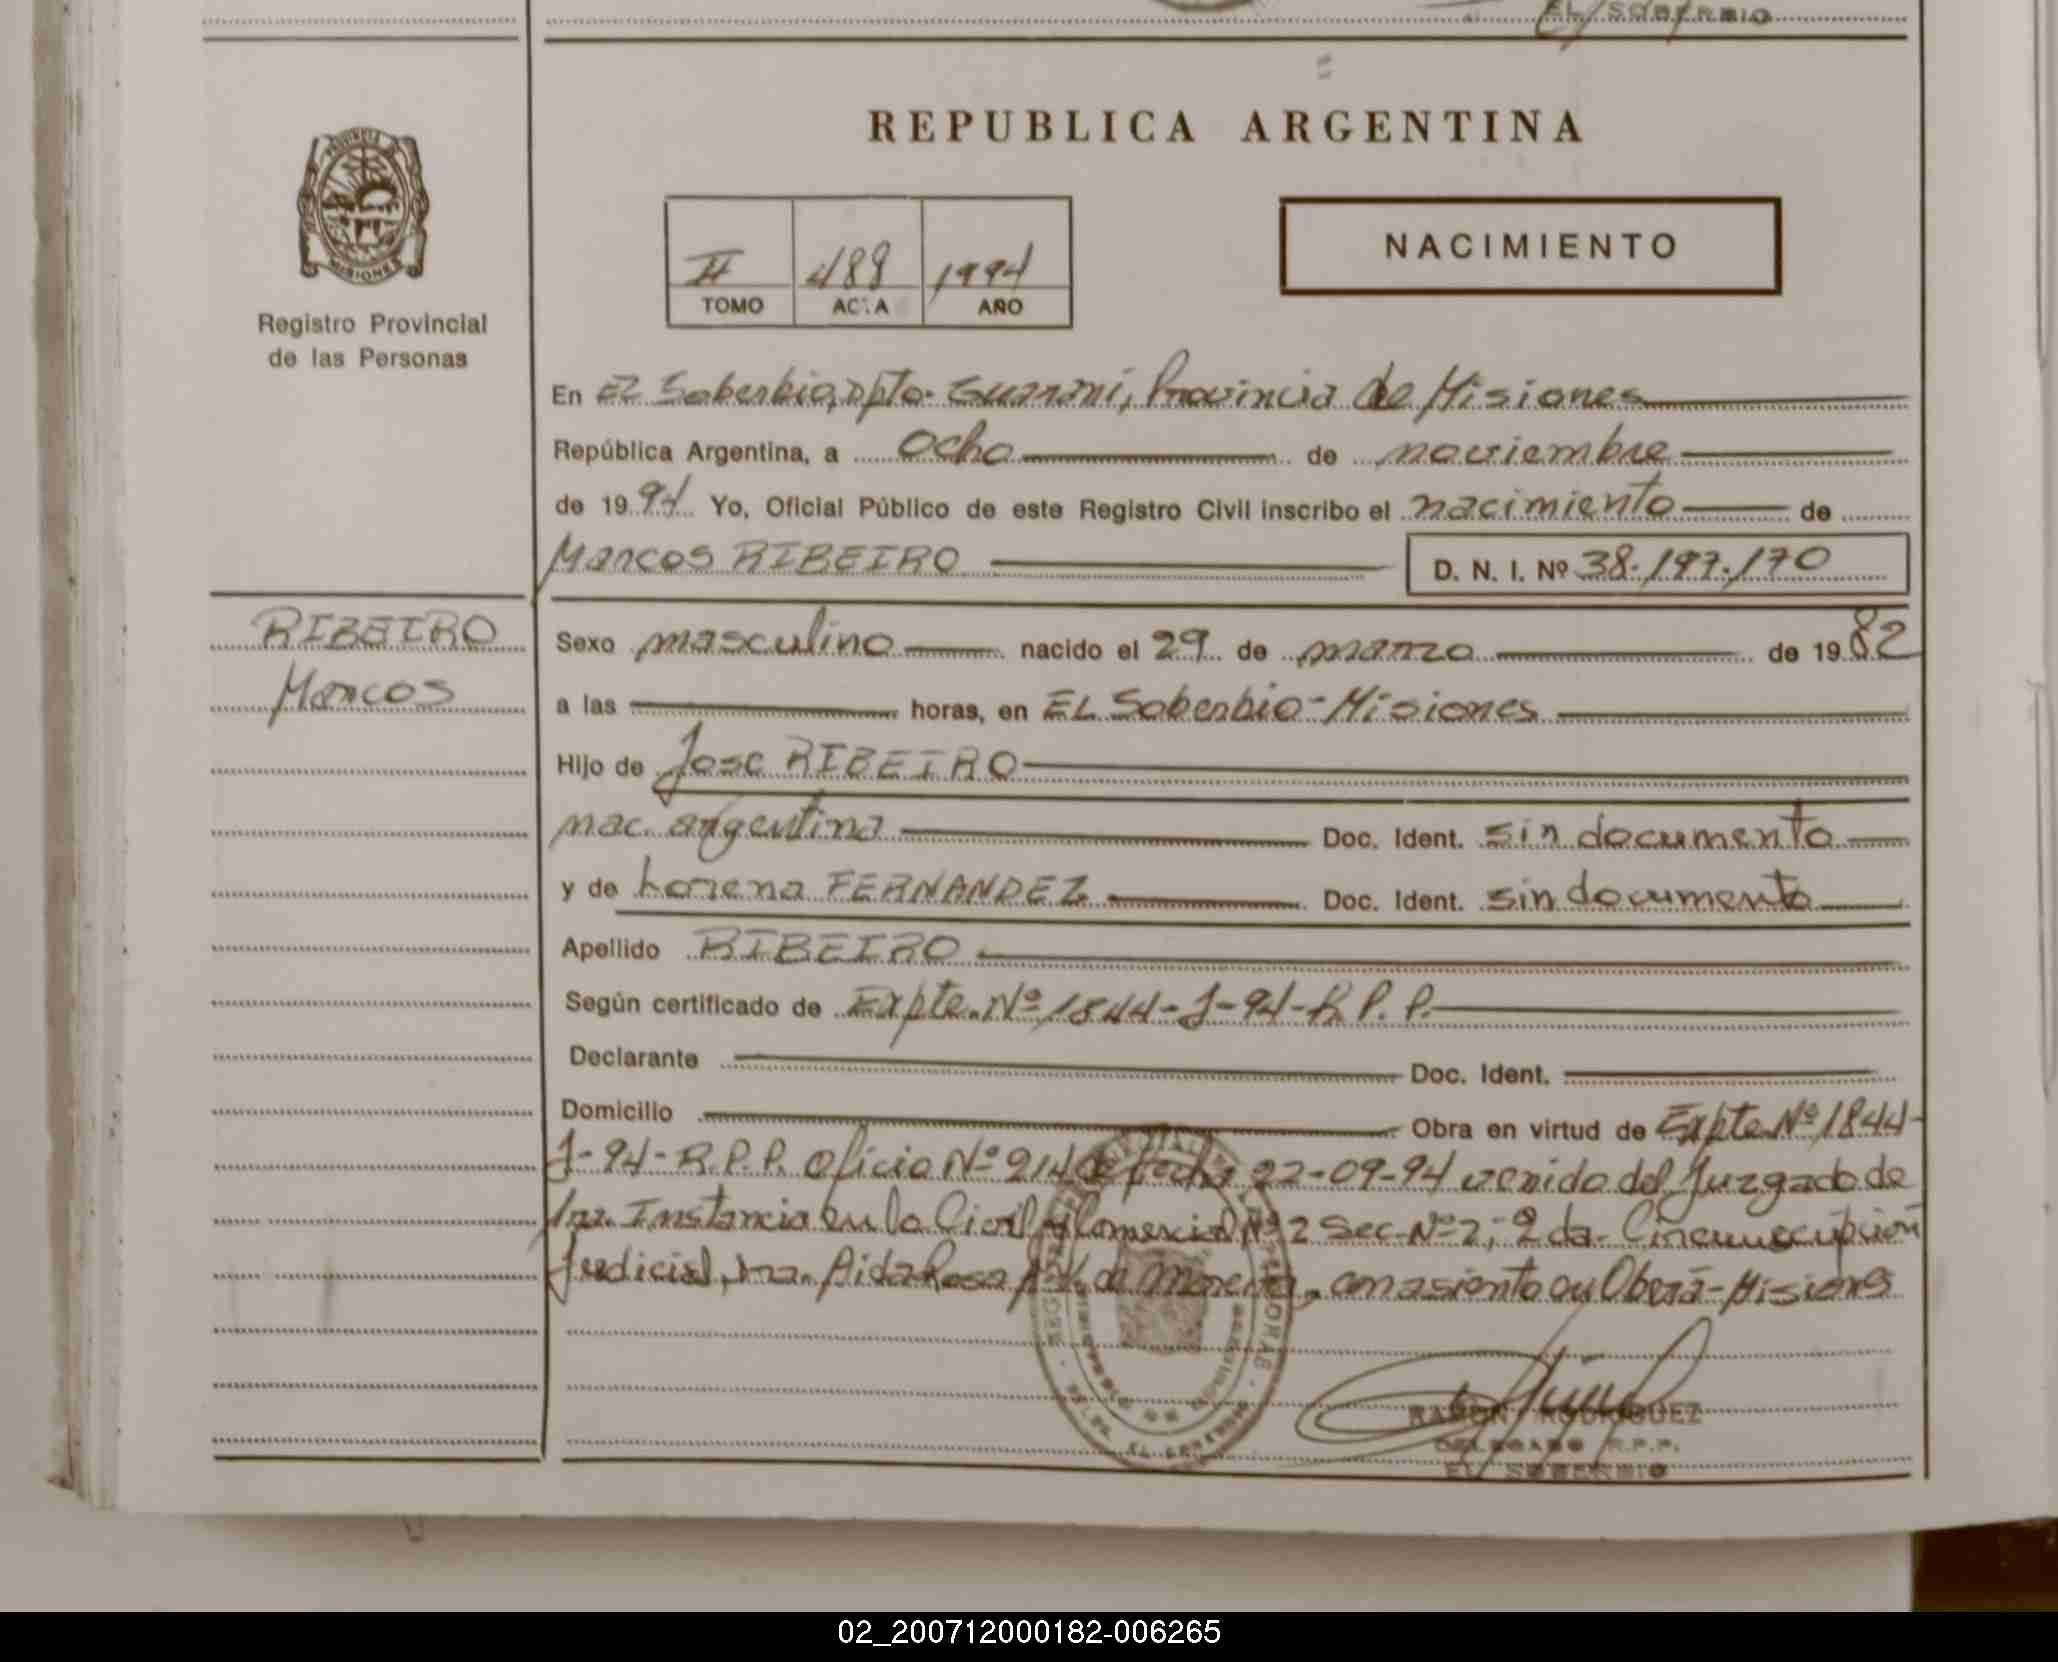 EL SOBERBIO
REPUBLICA ARGENTINA
PROVINCIA
MISIONES
Registro Provincial
de las Personas
II 489 1994
TOMO ACTA AÑO
NACIMIENTO
En El Soberbio, Dpto. Guaraní, Provincia de Misiones
República Argentina, a ocho de noviembre
de 19 94 Yo, Oficial Público de este Registro Civil inscribo el nacimiento de
Marcos RIBEIRO D. N. I. Nº 38.197.170
RIBEIRO
Marcos
Sexo masculino nacido el 29 de marzo de 19 82
a las horas, en EL Soberbio - Misiones
Hijo de José RIBEIRO
nac. argentina Doc. Ident. sin documento
y de Lorena FERNANDEZ Doc. Ident. sin documento
Apellido RIBEIRO
Según certificado de Expte. Nº 1844-J-94-R.P.P.
Declarante Doc. Ident.
Domicilio Obra en virtud de Expte Nº 1844-
J-94-R.P.P. Oficio Nº 914 de fecha 22-09-94 venido del Juzgado de
1ra. Instancia en lo Civil y Comercial Nº 2 Sec. Nº 2, 2da. Circunscripción
Judicial, Dra. Aida Rosa de Moreira, con asiento en Oberá - Misiones
RAMON RODRIGUEZ
DELEGADO R.P.P.
EL SOBERBIO
02_200712000182-006265